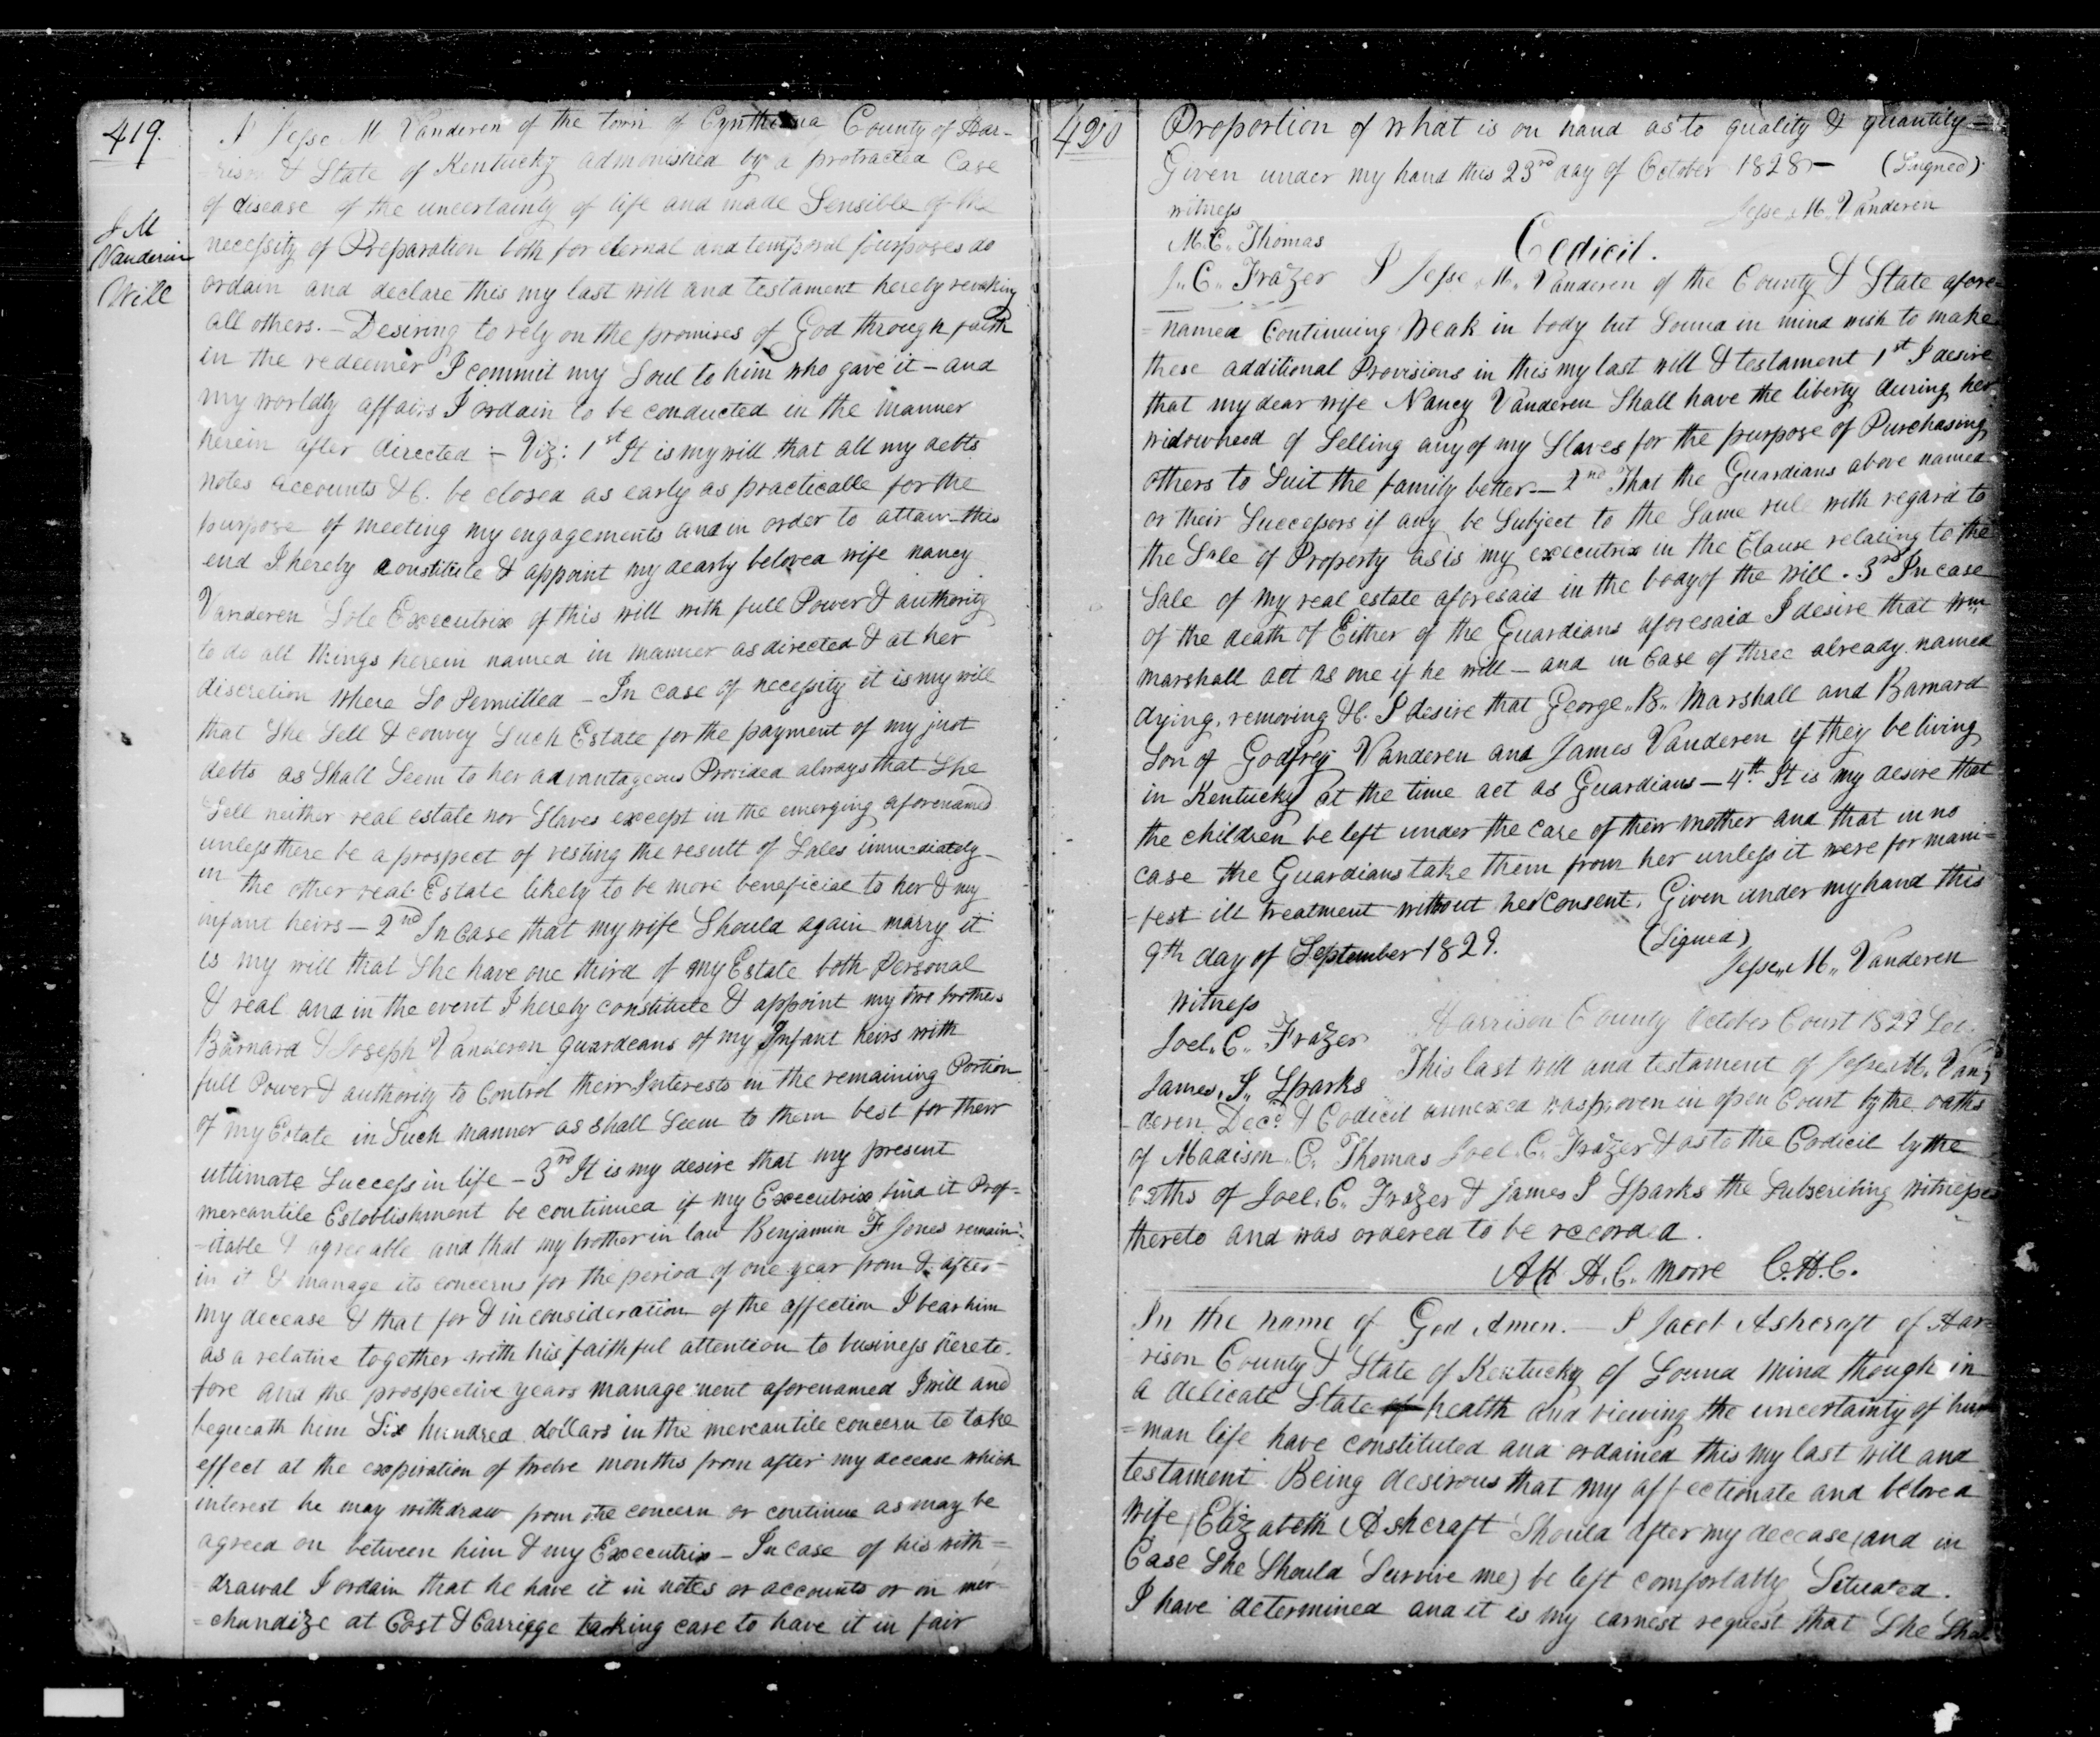 419.
J M
Vanderin
Will
I Jesse M Vanderen of the town of Cynthiana County of Har-
-rison & State of Kentucky admonished by a protracted Case
of disease of the uncertainty of life and made Sensible of the
necessity of Preparation both for eternal and temporal purposes do
ordain and declare this my last will and testament hereby revoking
all others. – Desiring to rely on the promises of God through faith
in the redeemer I commit my Soul to him who gave it – and
my worldly affairs I ordain to be conducted in the manner
herein after directed – Viz: 1st It is my will that all my debts
notes accounts &C. be closed as early as practicable for the
purpose of meeting my engagements and in order to attain this
end I hereby constitute & appoint my dearly beloved wife nancy
Vanderen Sole Executrix of this will with full Power & authority
to do all things herein named in manner as directed & at her
discretion where So Permitted – In case of necessity it is my will
that She Sell & convey Such Estate for the payment of my just
debts as Shall Seem to her advantageous Provided always that She
Sell neither real estate nor Slaves except in the emerging aforenamed
unless there be a prospect of vesting the result of Sales immediately
in the other real Estate likely to be more beneficial to her & my
infant heirs – 2nd In Case that my wife Should again marry it
is my will that She have one third of my Estate both Personal
& real and in the event I hereby constitute & appoint my two brothers
Barnard & Joseph Vanderen guardeans of my Infant heirs with
full Power & authority to Control their Interests in the remaining Portion
of my Estate in Such manner as shall Seem to them best for their
ultimate Success in life – 3rd It is my desire that my present
mercantile Establishment be continued if my Executrix find it Prof=
-itable & agreeable and that my brother in law Benjamin F Jones remain
in it & manage its concerns for the period of one year from & after
my decease & that for & in consideration of the affection I bear him
as a relative together with his faithful attention to business hereto-
fore and the prospective years management aforenamed I will and
bequeath him Six hundred dollars in the mercantile concern to take
effect at the expiration of twelve months from after my decease which
interest he may withdraw from the concern or continue as may be
agreed on between him & my Executrix – In case of his with=
drawal I ordain that he have it in notes or accounts or in mer-
=chandize at Cost & Carriage taking care to have it in fair
420
Proportion of what is on hand as to quality & quantity=
Given under my hand this 23rd day of October 1828 – (Signed)
Jesse M. Vanderen
witness
M. C. Thomas
Codicil.
J. C. Frazer I Jesse M. Vanderen of the County & State afore=
=named Continuing Weak in body but Sound in mind wish to make
these additional Provisions in this my last will & testament 1st I desire
that my dear wife Nancy Vanderen Shall have the liberty during her
widowhood of Selling any of my Slaves for the purpose of Purchasing
others to Suit the family better – 2nd That the Guardians above named
or their Successors if any be Subject to the Same rule with regard to
the Sale of Property as is my executrix in the Clause relating to the
Sale of my real estate aforesaid in the body of the will. 3rd In case
of the death of Either of the Guardians aforesaid I desire that Wm
marshall act as one if he will – and in Case of three already named
dying, removing &C. I desire that George B. Marshall and Barnard
Son of Godfrey Vanderen and James Vanderen if they be living
in Kentucky at the time act as Guardians – 4th It is my desire that
the children be left under the care of their mother and that in no
case the Guardians take them from her unless it were for mani=
-fest ill treatment without her Consent. Given under my hand this
9th day of September 1829. (Signed)
Jesse M. Vanderen
witness
Joel. C. Frazer
Harrison County October Court 1829
James. I. Sparks This last will and testament of Jesse M. Van
-deren Decd & Codicil annexed was proven in open Court by the oaths
of Madison. C. Thomas Joel. C. Frazer & as to the Codicil by the
oaths of Joel. C. Frazer & James I Sparks the Subscribing Witnesses
thereto and was ordered to be recorded.
Att H. C. Moore C.H.C.
In the name of God Amen. – I Jacob Ashcraft of Har=
rison County & State of Kentucky of Sound Mind though in
a delicate State of health and viewing the uncertainty of hu
=man life have constituted and ordained this my last will and
testament. Being desirous that my affectionate and beloved
Wife Elizabeth Ashcraft Should after my decease (and in
Case She Should Survive me) be left comfortably Situated.
I have determined and it is my earnest request that She Shal